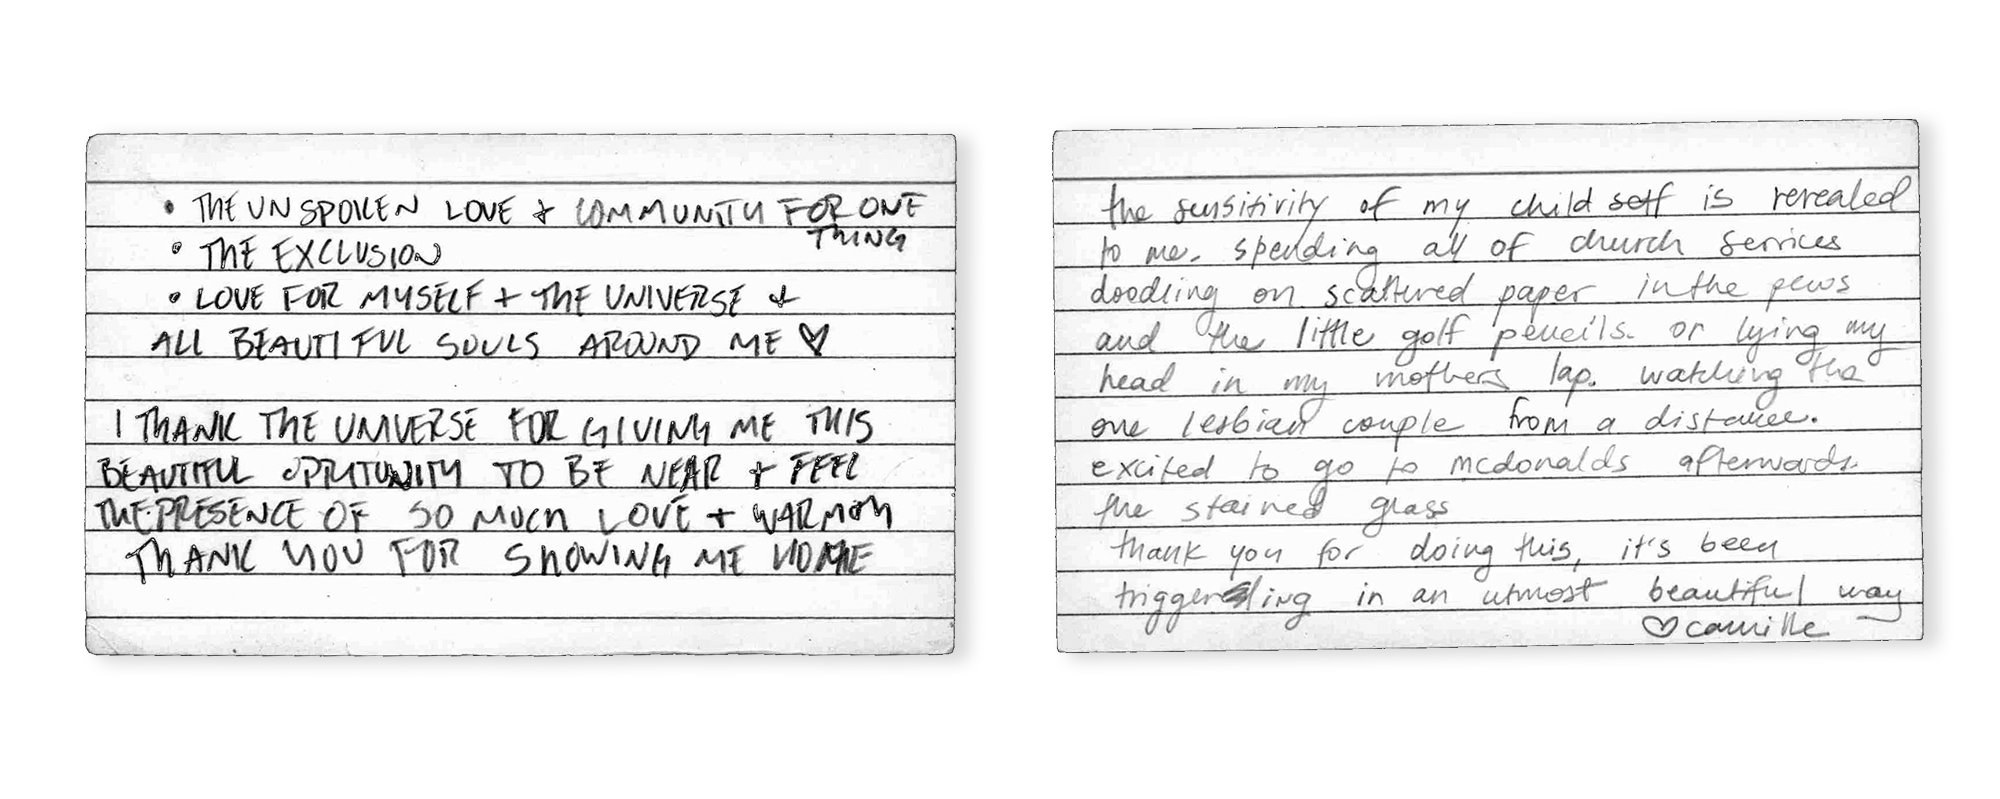 • THE UNSPOKEN LOVE + COMMUNITY FOR ONE
THING
• THE EXCLUSION
• LOVE FOR MYSELF + THE UNIVERSE +
ALL BEAUTIFUL SOULS AROUND ME ♡
I THANK THE UNIVERSE FOR GIVING ME THIS
BEAUTIFUL OPRUTUNITY TO BE NEAR + FEEL
THE PRESENCE OF SO MUCH LOVE + WARMTH
THANK YOU FOR SHOWING ME HOME
the sensitivity of my child self is revealed
to me. spending all of church services
doodling on scattured paper in the pews
and the little golf pencils. or lying my
head in my mothers lap. watching the
one lesbian couple from a distance.
excited to go to mcdonalds afterwards.
the stained glass
thank you for doing this, it's been
triggering in an utmost beautiful way
♡ camille